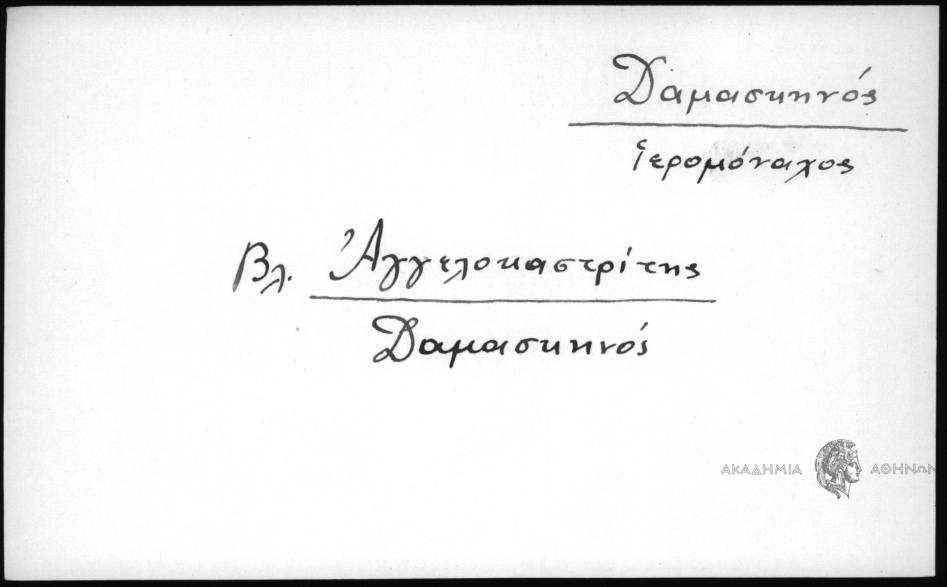 Δαμασκηνός
ἱερομόναχος
Βλ. Ἀγγελοκαστρίτης
Δαμασκηνός
ΑΚΑΔΗΜΙΑ ΑΘΗΝΩΝ